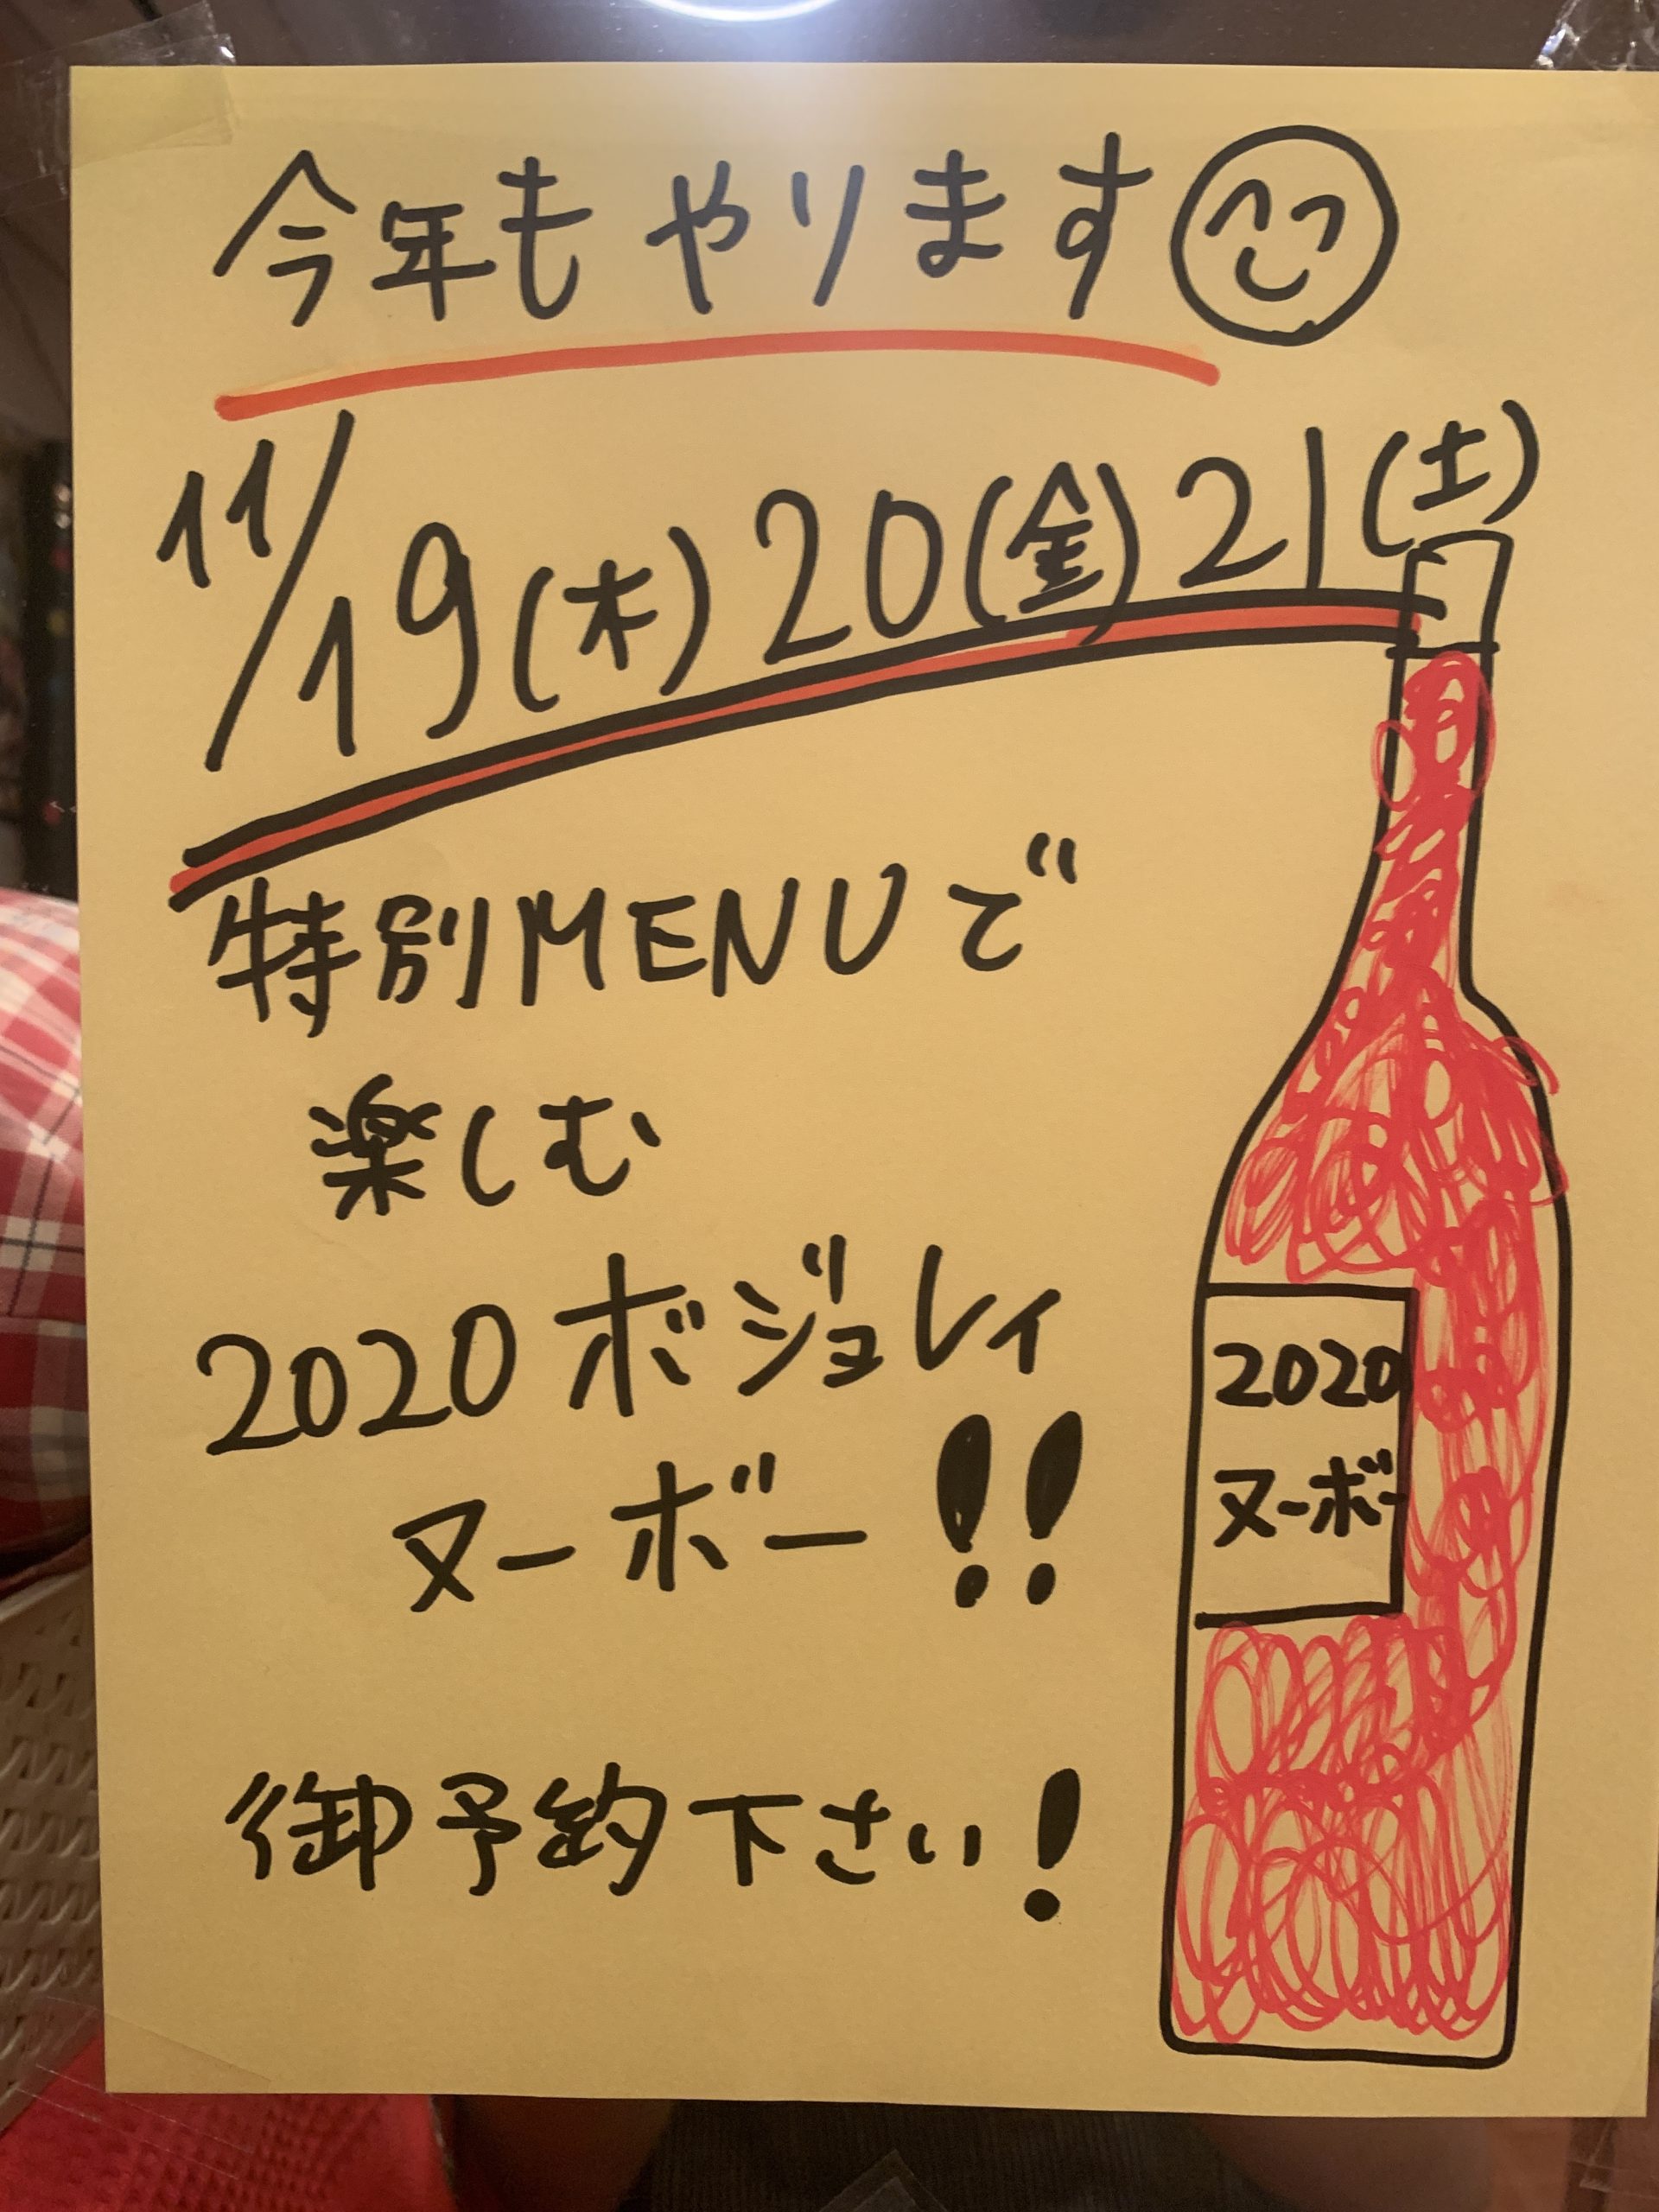 今年もやります
11/19(木)20(金)21(土)
特別MENUで
楽しむ
2020ボジョレィ
ヌーボー!!
御予約下さい!
2020
ヌーボー